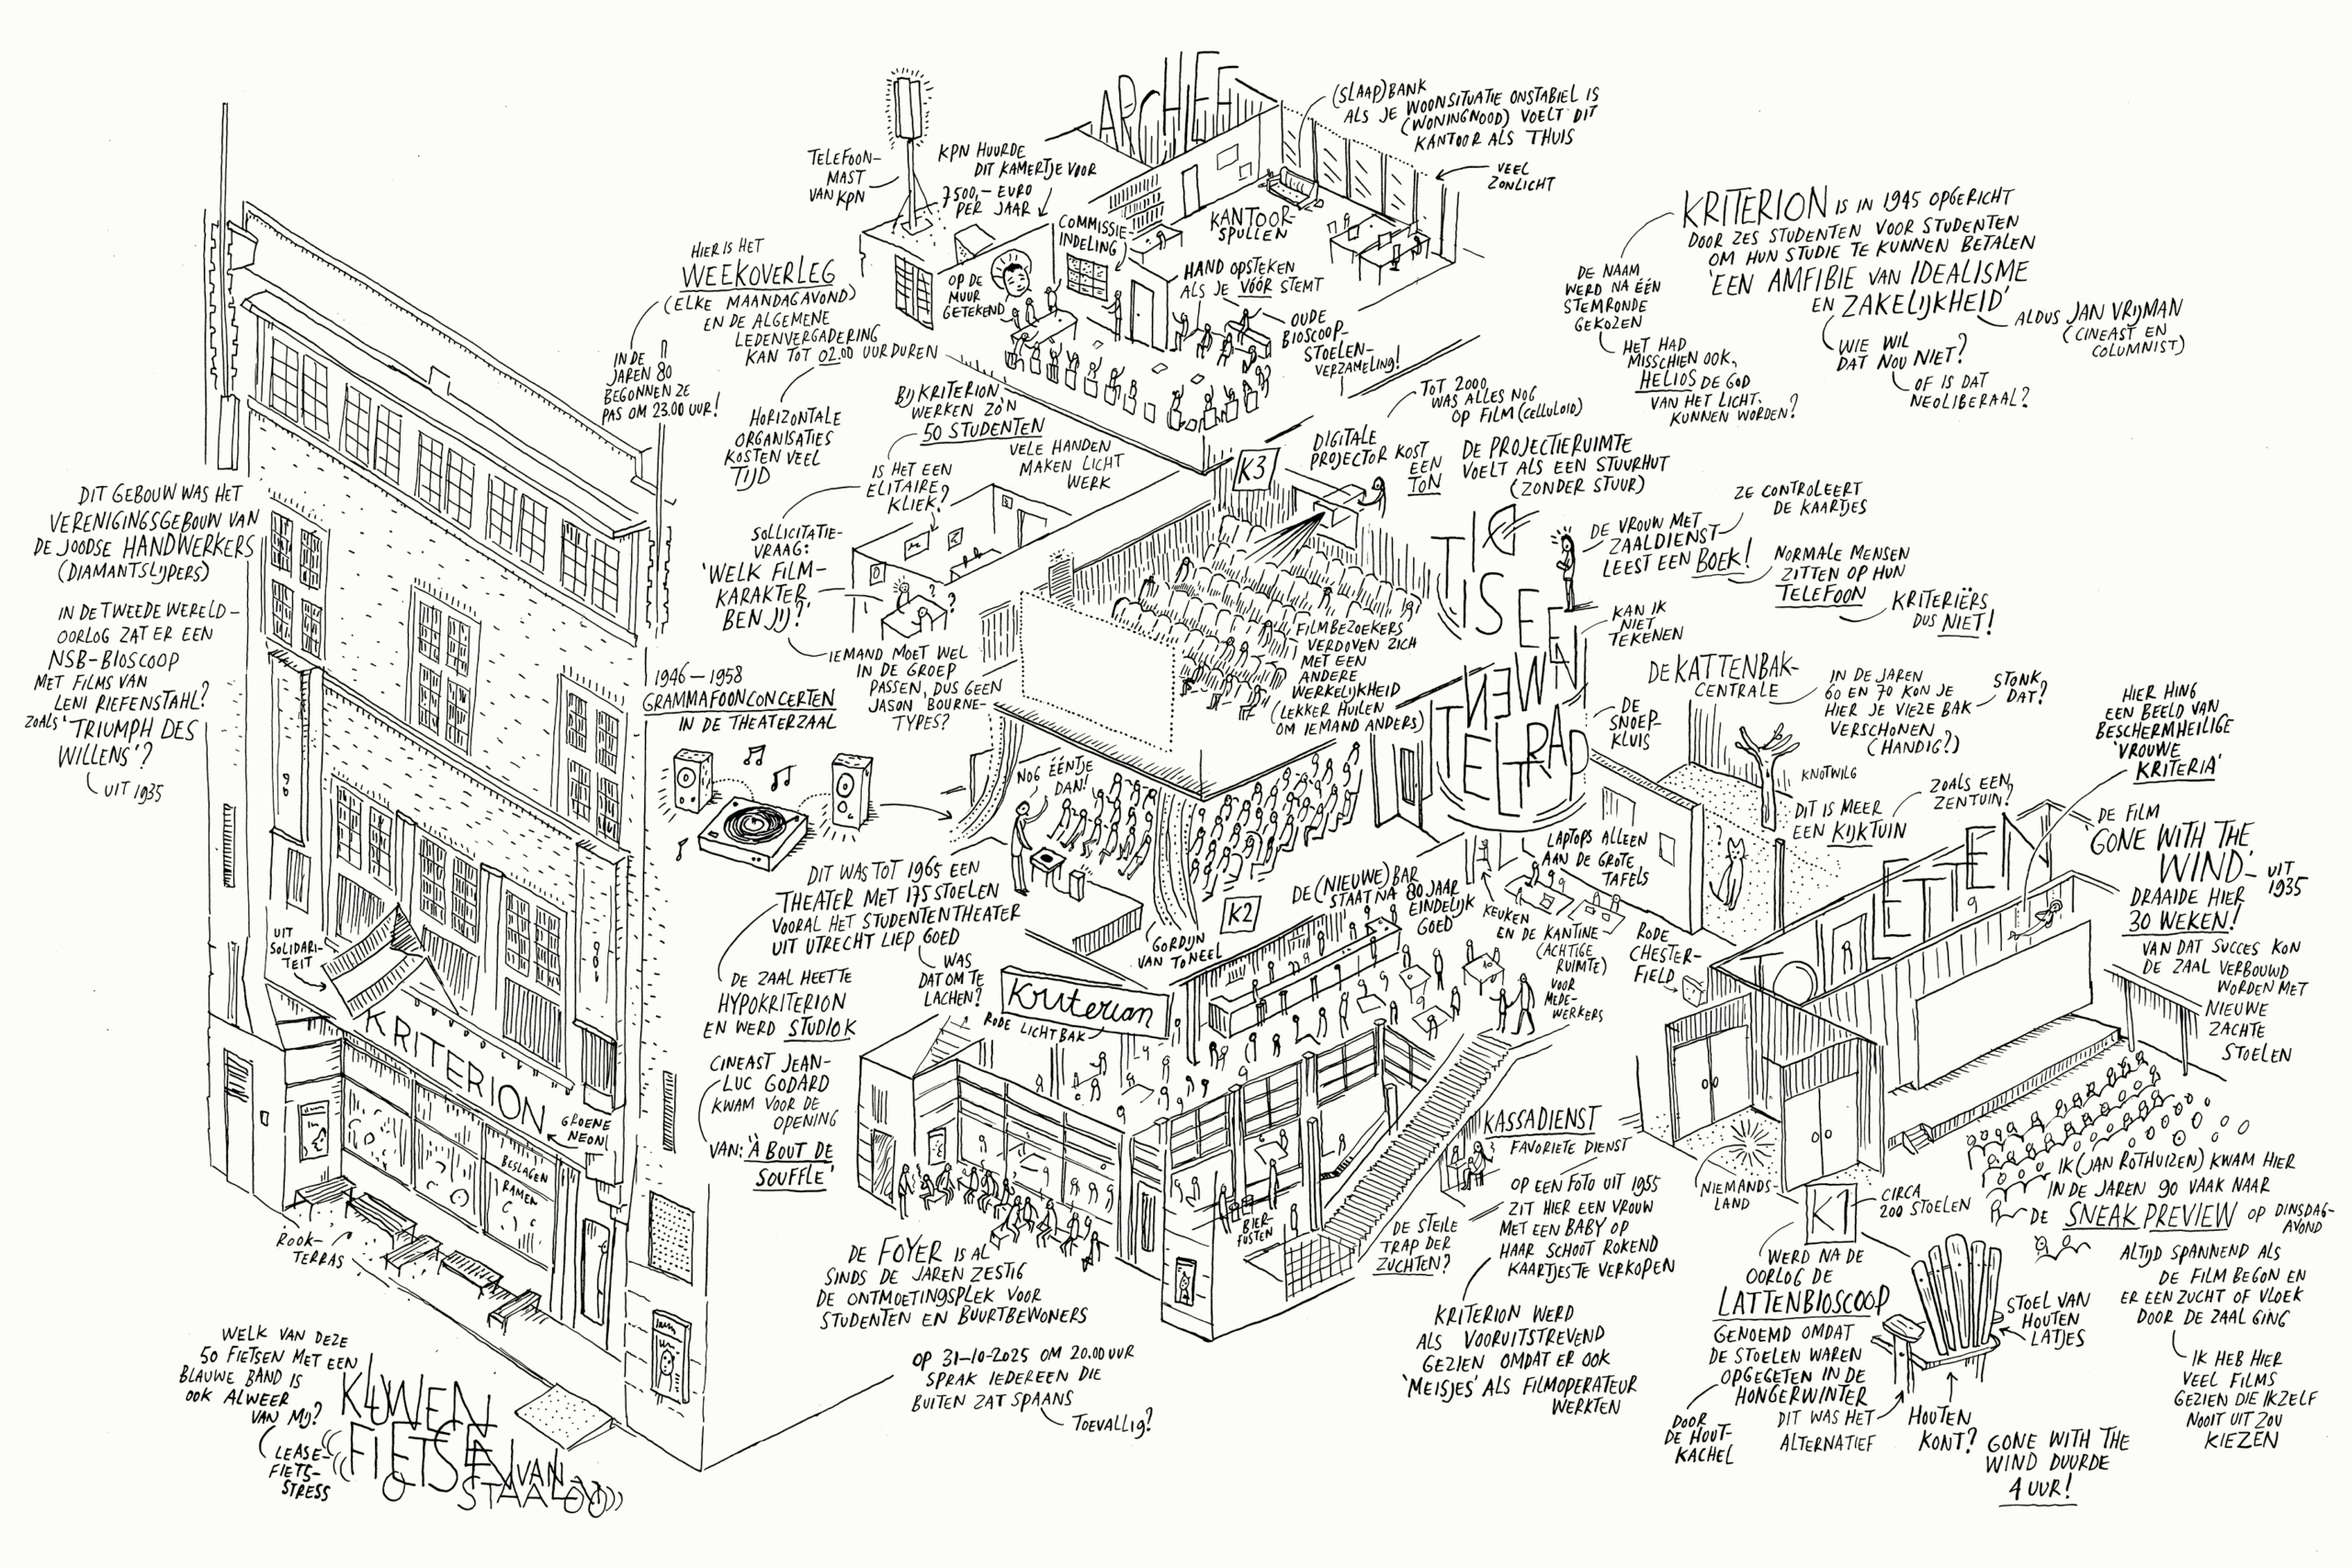 ARCHIEF
(SLAAP)BANK
ALS JE WOONSITUATIE ONSTABIEL IS
(WONINGNOOD) VOELT DIT
KANTOOR ALS THUIS
VEEL
ZONLICHT
TELEFOON-
MAST
VAN KPN
KPN HUURDE
DIT KAMERTJE VOOR
7500,- EURO
PER JAAR
COMMISSIE
INDELING
KANTOOR-
SPULLEN
OP DE
MUUR
GETEKEND
HAND OPSTEKEN
ALS JE VÓÓR STEMT
OUDE
BIOSCOOP-
STOELEN-
VERZAMELING!
HIER IS HET
WEEKOVERLEG
(ELKE MAANDAGAVOND)
EN DE ALGEMENE
LEDENVERGADERING
KAN TOT 02.00 UUR DUREN
IN DE
JAREN 80
BEGONNEN ZE
PAS OM 23.00 UUR!
HORIZONTALE
ORGANISATIES
KOSTEN VEEL
TIJD
KRITERION IS IN 1945 OPGERICHT
DOOR ZES STUDENTEN VOOR STUDENTEN
OM HUN STUDIE TE KUNNEN BETALEN
'EEN AMFIBIE VAN IDEALISME
EN ZAKELIJKHEID'
ALDUS JAN VRIJMAN
(CINEAST EN
COLUMNIST)
WIE WIL
DAT NOU NIET?
OF IS DAT
NEOLIBERAAL?
DE NAAM
WERD NA ÉÉN
STEMRONDE
GEKOZEN
HET HAD
MISSCHIEN OOK
HELIOS DE GOD
VAN HET LICHT
KUNNEN WORDEN?
BIJ KRITERION
WERKEN ZO'N
50 STUDENTEN
VELE HANDEN
MAKEN LICHT
WERK
IS HET EEN
ELITAIRE
KLIEK?
SOLLICITATIE-
VRAAG:
'WELK FILM-
KARAKTER
BEN JIJ?'
IEMAND MOET WEL
IN DE GROEP
PASSEN, DUS GEEN
JASON BOURNE-
TYPES?
K3
TOT 2000
WAS ALLES NOG
OP FILM (CELLULOID)
DIGITALE
PROJECTOR KOST
EEN
TON
DE PROJECTIERUIMTE
VOELT ALS EEN STUURHUT
(ZONDER STUUR)
FILMBEZOEKERS
VERDOVEN ZICH
MET EEN
ANDERE
WERKELIJKHEID
(LEKKER HUILEN
OM IEMAND ANDERS)
DE VROUW MET
ZAALDIENST
LEEST EEN BOEK!
ZE CONTROLEERT
DE KAARTJES
NORMALE MENSEN
ZITTEN OP HUN
TELEFOON
KRITERIËRS
DUS NIET!
IS EEN
WENTELTRAP
KAN IK
NIET
TEKENEN
DE
SNOEP-
KLUIS
DE KATTENBAK-
CENTRALE
IN DE JAREN
60 EN 70 KON JE
HIER JE VIEZE BAK
VERSCHONEN
(HANDIG?)
STONK
DAT?
KNOTWILG
DIT IS MEER
EEN KIJKTUIN
ZOALS EEN
ZENTUIN?
DIT GEBOUW WAS HET
VERENIGINGSGEBOUW VAN
DE JOODSE HANDWERKERS
(DIAMANTSLIJPERS)
IN DE TWEEDE WERELD-
OORLOG ZAT ER EEN
NSB-BIOSCOOP
MET FILMS VAN
LENI RIEFENSTAHL?
ZOALS 'TRIUMPH DES
WILLENS'?
UIT 1935
1946-1958
GRAMMAFOONCONCERTEN
IN DE THEATERZAAL
NOG ÉÉNTJE
DAN!
DIT WAS TOT 1965 EEN
THEATER MET 175 STOELEN
VOORAL HET STUDENTENTHEATER
UIT UTRECHT LIEP GOED
WAS
DAT OM TE
LACHEN?
DE ZAAL HEETTE
HYPOKRITERION
EN WERD STUDIO K
CINEAST JEAN-
LUC GODARD
KWAM VOOR DE
OPENING
VAN: 'À BOUT DE
SOUFFLE'
K2
GORDIJN
VAN TONEEL
UIT
SOLIDARI-
TEIT
KRITERION
GROENE
NEON
BESLAGEN
RAMEN
ROOK-
TERRAS
WELK VAN DEZE
50 FIETSEN MET EEN
BLAUWE BAND IS
OOK ALWEER
VAN MIJ?
LEASE-
FIETS-
STRESS
KLUWEN
FIETSEN VAN
STAAL
Kriterion
RODE LICHTBAK
DE (NIEUWE) BAR
STAAT NA 80 JAAR
EINDELIJK
GOED
KEUKEN
EN DE KANTINE
(ACHTIGE
RUIMTE)
VOOR
MEDE-
WERKERS
LAPTOPS ALLEEN
AAN DE GROTE
TAFELS
RODE
CHESTER-
FIELD
TOILETTEN
BIER-
FUSTEN
DE STEILE
TRAP DER
ZUCHTEN?
KASSADIENST
FAVORIETE DIENST
OP EEN FOTO UIT 1955
ZIT HIER EEN VROUW
MET EEN BABY OP
HAAR SCHOOT ROKEND
KAARTJES TE VERKOPEN
KRITERION WERD
ALS VOORUITSTREVEND
GEZIEN OMDAT ER OOK
'MEISJES' ALS FILMOPERATEUR
WERKTEN
DE FOYER IS AL
SINDS DE JAREN ZESTIG
DE ONTMOETINGSPLEK VOOR
STUDENTEN EN BUURTBEWONERS
OP 31-10-2025 OM 20.00 UUR
SPRAK IEDEREEN DIE
BUITEN ZAT SPAANS
TOEVALLIG?
HIER HING
EEN BEELD VAN
BESCHERMHEILIGE
'VROUWE
KRITERIA'
DE FILM
'GONE WITH THE
WIND' UIT
1935
DRAAIDE HIER
30 WEKEN!
VAN DAT SUCCES KON
DE ZAAL VERBOUWD
WORDEN MET
NIEUWE
ZACHTE
STOELEN
NIEMANDS-
LAND
K1
CIRCA
200 STOELEN
IK (JAN ROTHUIZEN) KWAM HIER
IN DE JAREN 90 VAAK NAAR
DE SNEAK PREVIEW OP DINSDAG-
AVOND
ALTIJD SPANNEND ALS
DE FILM BEGON EN
ER EEN ZUCHT OF VLOEK
DOOR DE ZAAL GING
IK HEB HIER
VEEL FILMS
GEZIEN DIE IKZELF
NOOIT UIT ZOU
KIEZEN
WERD NA DE
OORLOG DE
LATTENBIOSCOOP
GENOEMD OMDAT
DE STOELEN WAREN
OPGEGETEN IN DE
HONGERWINTER
DOOR
DE HOUT-
KACHEL
DIT WAS HET
ALTERNATIEF
STOEL VAN
HOUTEN
LATJES
HOUTEN
KONT?
GONE WITH THE
WIND DUURDE
4 UUR!